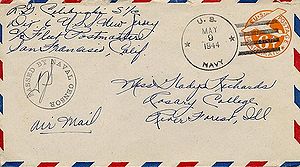 Div. U.S.S. New Jersey
c/o Fleet Postmaster
San Francisco, Calif
U. S.
MAY
9
1944
NAVY
PASSED BY NAVAL CENSOR
Miss Gladys Richards
Rosary College
River Forest, Ill
Air Mail